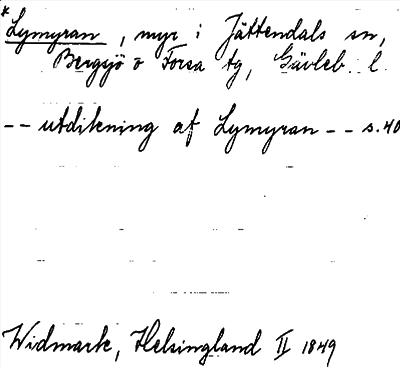 * Lymyran, myr i Jättendals sn,
Bergsjö o Forsa tg, Gävleb. l.
-- utdikning af Lymyran -- s. 40
Widmark, Helsingland II 1849